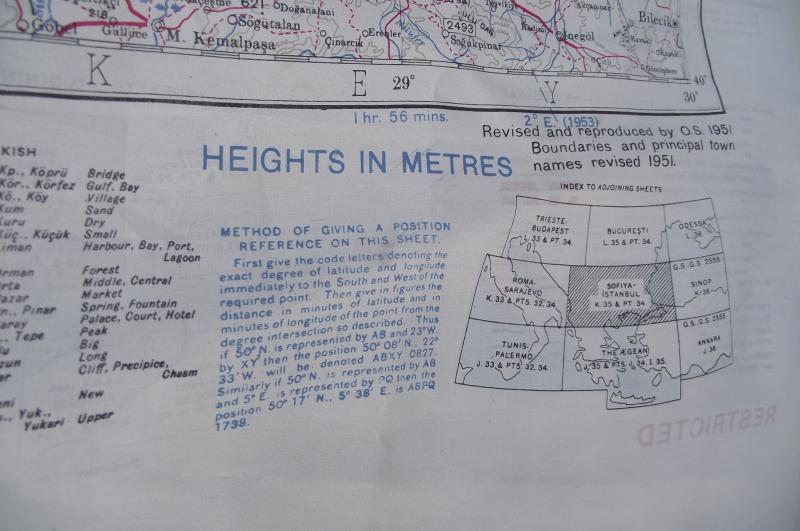 621
Doğanalani
Söğütalan
218
Göbel
Gulljice
M. Kemalpaşa
Çinarcık
Erenler
Nilufer
2493
Soğukpinar
İnegöl
Bilecik
K E Y
29°
40°
30'
1 hr. 56 mins.
2° E. (1953)
Revised and reproduced by O.S. 1951
Boundaries and principal town
names revised 1951.
HEIGHTS IN METRES
KISH
Kp., Köprü Bridge
Kör., Körfez Gulf, Bay
Kö., Köy Village
Kum Sand
Kuru Dry
Küç., Küçük Small
iman Harbour, Bay, Port,
Lagoon
rman Forest
rta Middle, Central
azar Market
n., Pınar Spring, Fountain
aray Palace, Court, Hotel
., Tepe Peak
Big
zun Long
ar Cliff, Precipice,
Chasm
eni New
., Yuk.,
Yukari Upper
METHOD OF GIVING A POSITION
REFERENCE ON THIS SHEET.
First give the code letters denoting the
exact degree of latitude and longitude
immediately to the South and West of the
required point. Then give in figures the
distance in minutes of latitude and in
minutes of longitude of the point from the
degree intersection so described. Thus
if 50° N. is represented by AB and 23° W.
by XY then the position 50° 08' N., 22°
33' W. will be denoted ABXY 0827.
Similarly if 50° N. is represented by AB
and 5° E. is represented by PQ then the
position 50° 17' N., 5° 38' E. is ABPQ
1738.
INDEX TO ADJOINING SHEETS
TRIESTE-
BUDAPEST
L. 33 & PT. 34.
BUCUREŞTI
L. 35 & PT. 34.
ODESSA
L. 36
ROMA-
SARAJEVO
K. 33 & PTS. 32, 34.
SOFIYA-
İSTANBUL
K. 35 & PT. 34.
G.S., G.S. 2555.
SINOP
K-36
TUNIS-
PALERMO
J. 33 & PTS. 32, 34.
THE ÆGEAN
J. 35 & PTS. J. 34, I. 35.
G.S., G.S. 2555
ANKARA
J. 36
RESTRICTED